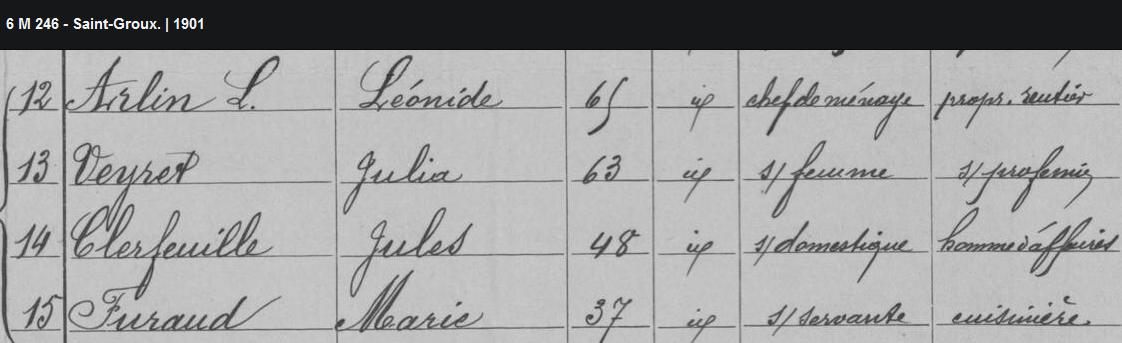 6 M 246 - Saint-Groux. | 1901
12 Arlin L. Léonide 65 id chef de ménage propr. rentier
13 Veyret Julia 63 id s/ femme s/ profession
14 Clerfeuille Jules 48 id s/ domestique homme d'affaires
15 Furaud Marie 37 id s/ servante cuisinière.